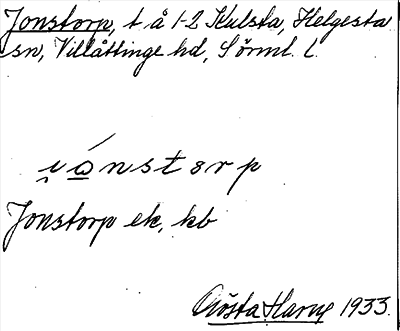 Jonstorp, t å 1-2 Kulsta, Helgesta
sn, Villåttinge hd, Sörml. l.
i̯ó̲nstorp
Jonstorp ek, kb
Gösta Harup 1933.